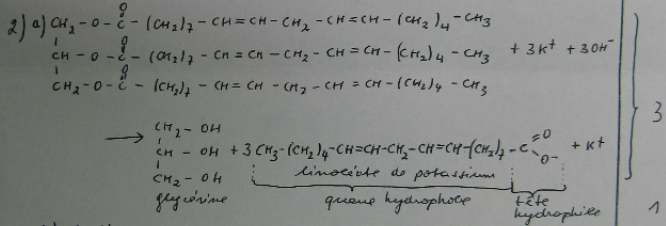 2) a) CH2 - O - C - (CH2)7 - CH = CH - CH2 - CH = CH - (CH2)4 - CH3
O
CH - O - C - (CH2)7 - CH = CH - CH2 - CH = CH - (CH2)4 - CH3 + 3K+ + 3OH-
O
CH2 - O - C - (CH2)7 - CH = CH - CH2 - CH = CH - (CH2)4 - CH3
O
3
→ CH2 - OH
CH - OH + 3 CH3-(CH2)4-CH=CH-CH2-CH=CH-(CH2)7-C =O O- + K+
CH2 - OH
linoléate de potassium
glycérine queue hydrophobe tête
hydrophile 1